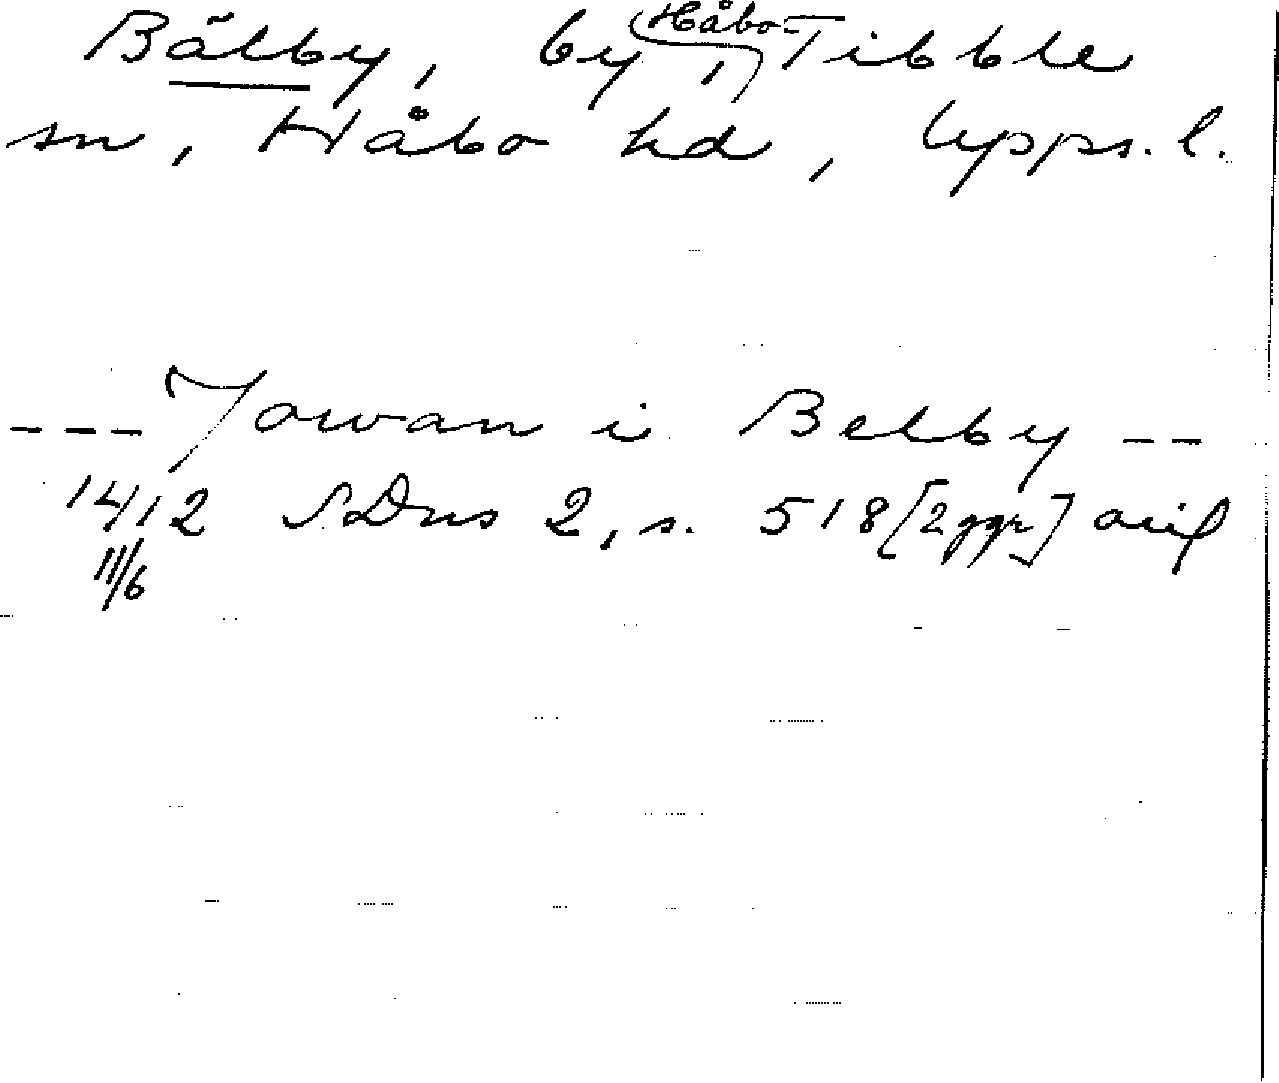 Bälby, by, Håbo-Tibble
sn, Håbo hd, Upps. l.
--- Jowan i Belby --
1412 SDns 2, s. 518 [2 ggr]
11/6